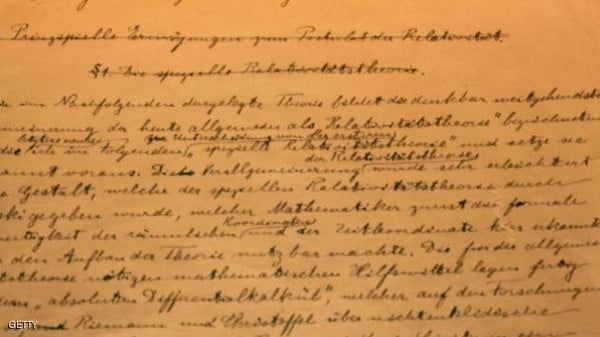 Prinzipielle Erwägungen zum Postulat der Relativität.
§1. Die spezielle Relativitätstheorie.
im Nachfolgenden dargelegte Theorie bildet die denkbar weitgehendste
meinerung der heute allgemein als „Relativitätstheorie" bezeichneten
letztere nenne zur Unterscheidung von der ersteren
die ich im folgenden „spezielle Relativitätstheorie" und setze sie
der Relativitätstheorie
annt voraus. Die Verallgemeinerung wurde sehr erleichtert
Gestalt, welche der speziellen Relativitätstheorie durch
ski gegeben wurde, welcher Mathematiker zuerst die formale
Koordinaten
wertigkeit der räumlichen und der Zeitkoordinate klar erkannte
den Aufbau der Theorie nutzbar machte. Die für die allgemeine
tstheorie nötigen mathematischen Hilfsmittel lagen fertig
dem „absoluten Differentialkalkül", welcher auf den Forschungen
Riemann und Christoffel über nichteuklidische
GETTY